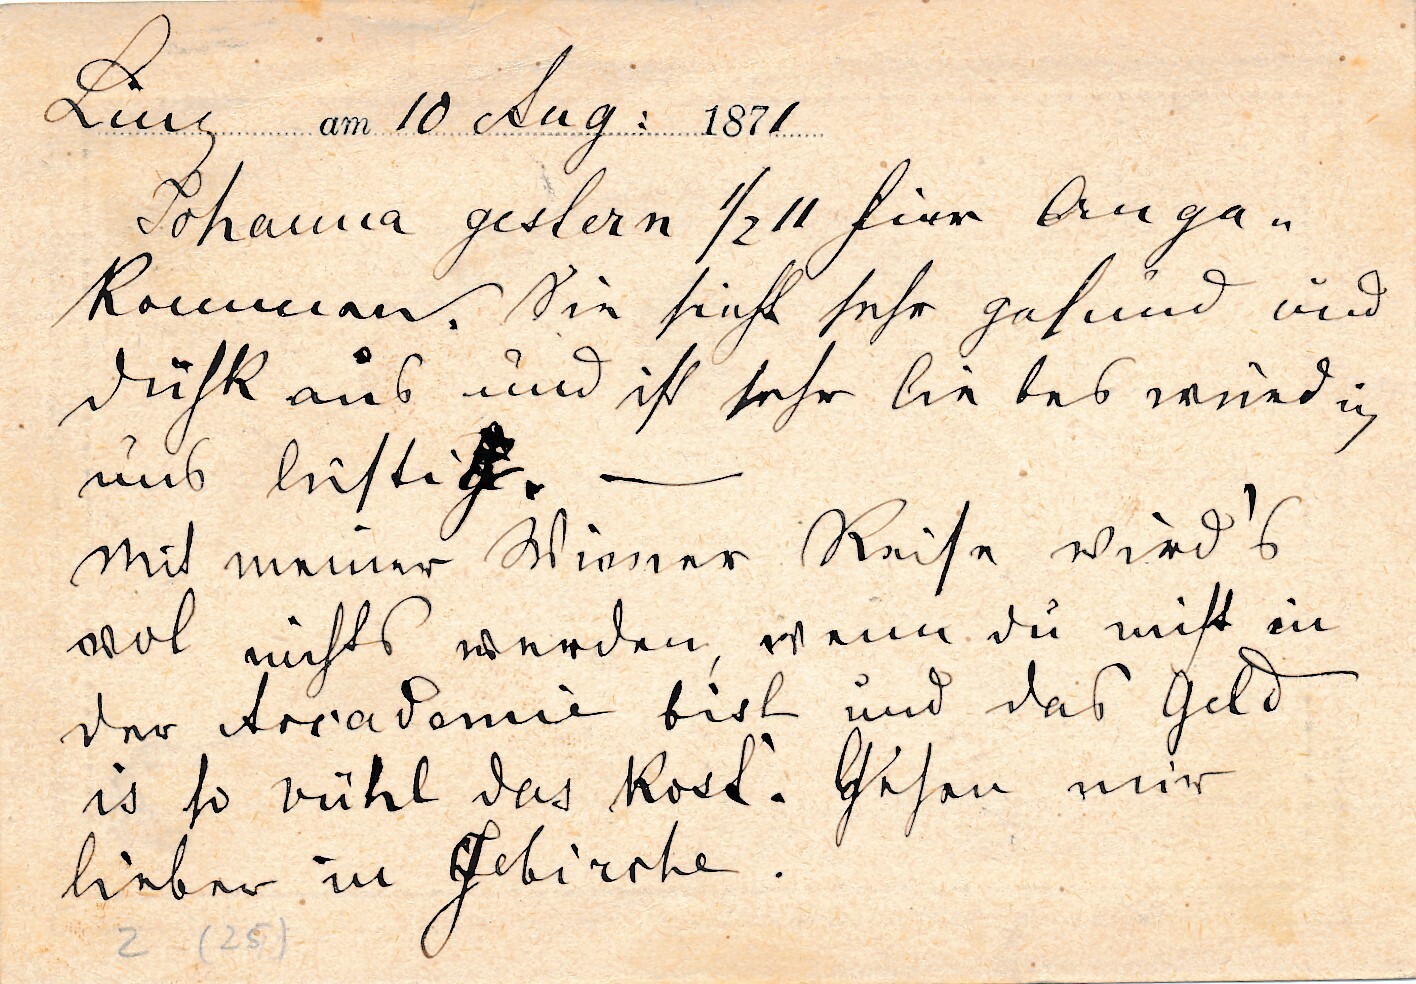 Linz am 10 Aug: 1871
Johanna gestern 1/211 hier Ange-
kommen. Sie sieht sehr gesund und
aus und ist sehr liebeswürdig
und lustig. —
Mit meiner Wiener Reise wird's
wol nichts werden, wenn du nicht in
der Accademie bist und das Geld
is so vühl das kost. Gehen mir
lieber in Gebirche.
2 (25)